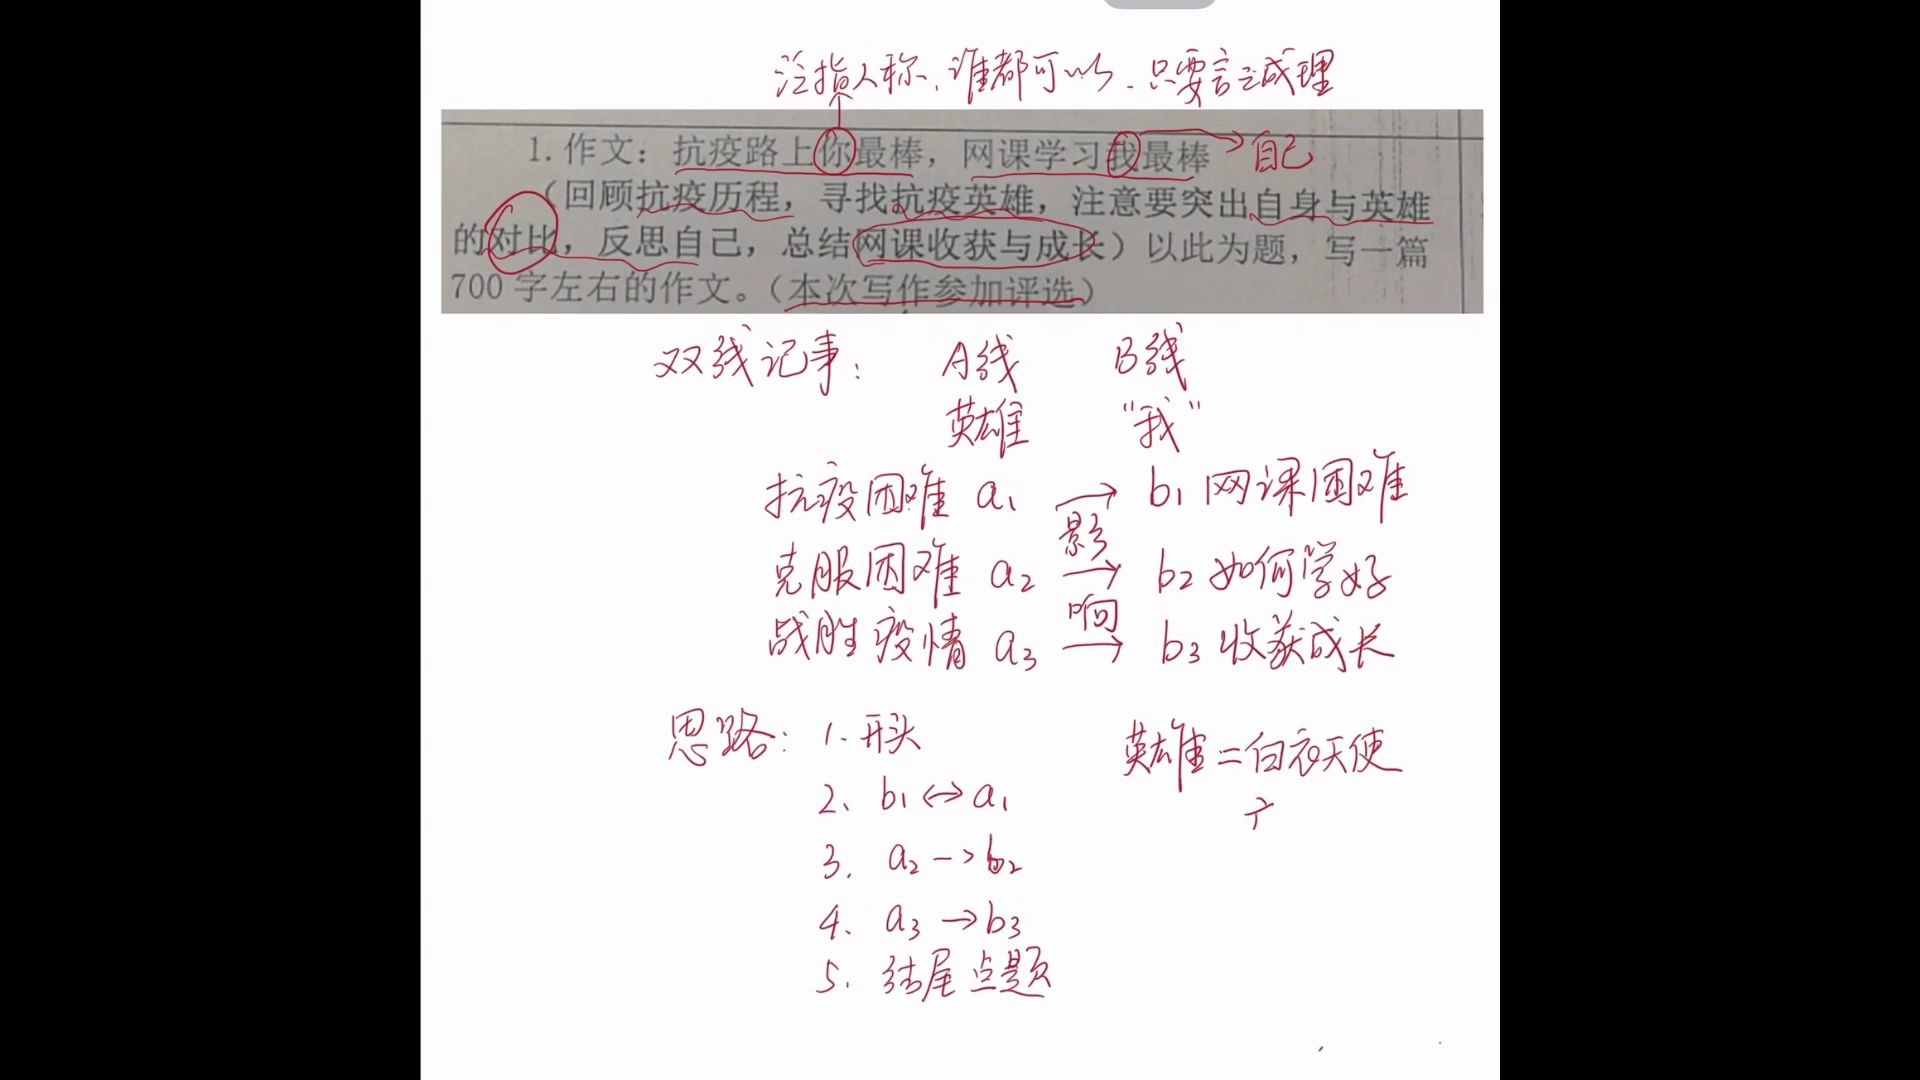 泛指人称、谁都可以、只要言之成理
1.作文：抗疫路上你最棒，网课学习我最棒 自己
（回顾抗疫历程，寻找抗疫英雄，注意要突出自身与英雄
的对比，反思自己，总结网课收获与成长）以此为题，写一篇
700字左右的作文。（本次写作参加评选）
双线记事： A线 B线
英雄 “我”
抗疫困难 a1 → b1 网课困难
影
克服困难 a2 → b2 如何学好
响
战胜疫情 a3 → b3 收获成长
思路： 1. 开头
英雄=白衣天使
2、 b1 ↔ a1
3. a2 → b2
4、 a3 → b3
5. 结尾点题